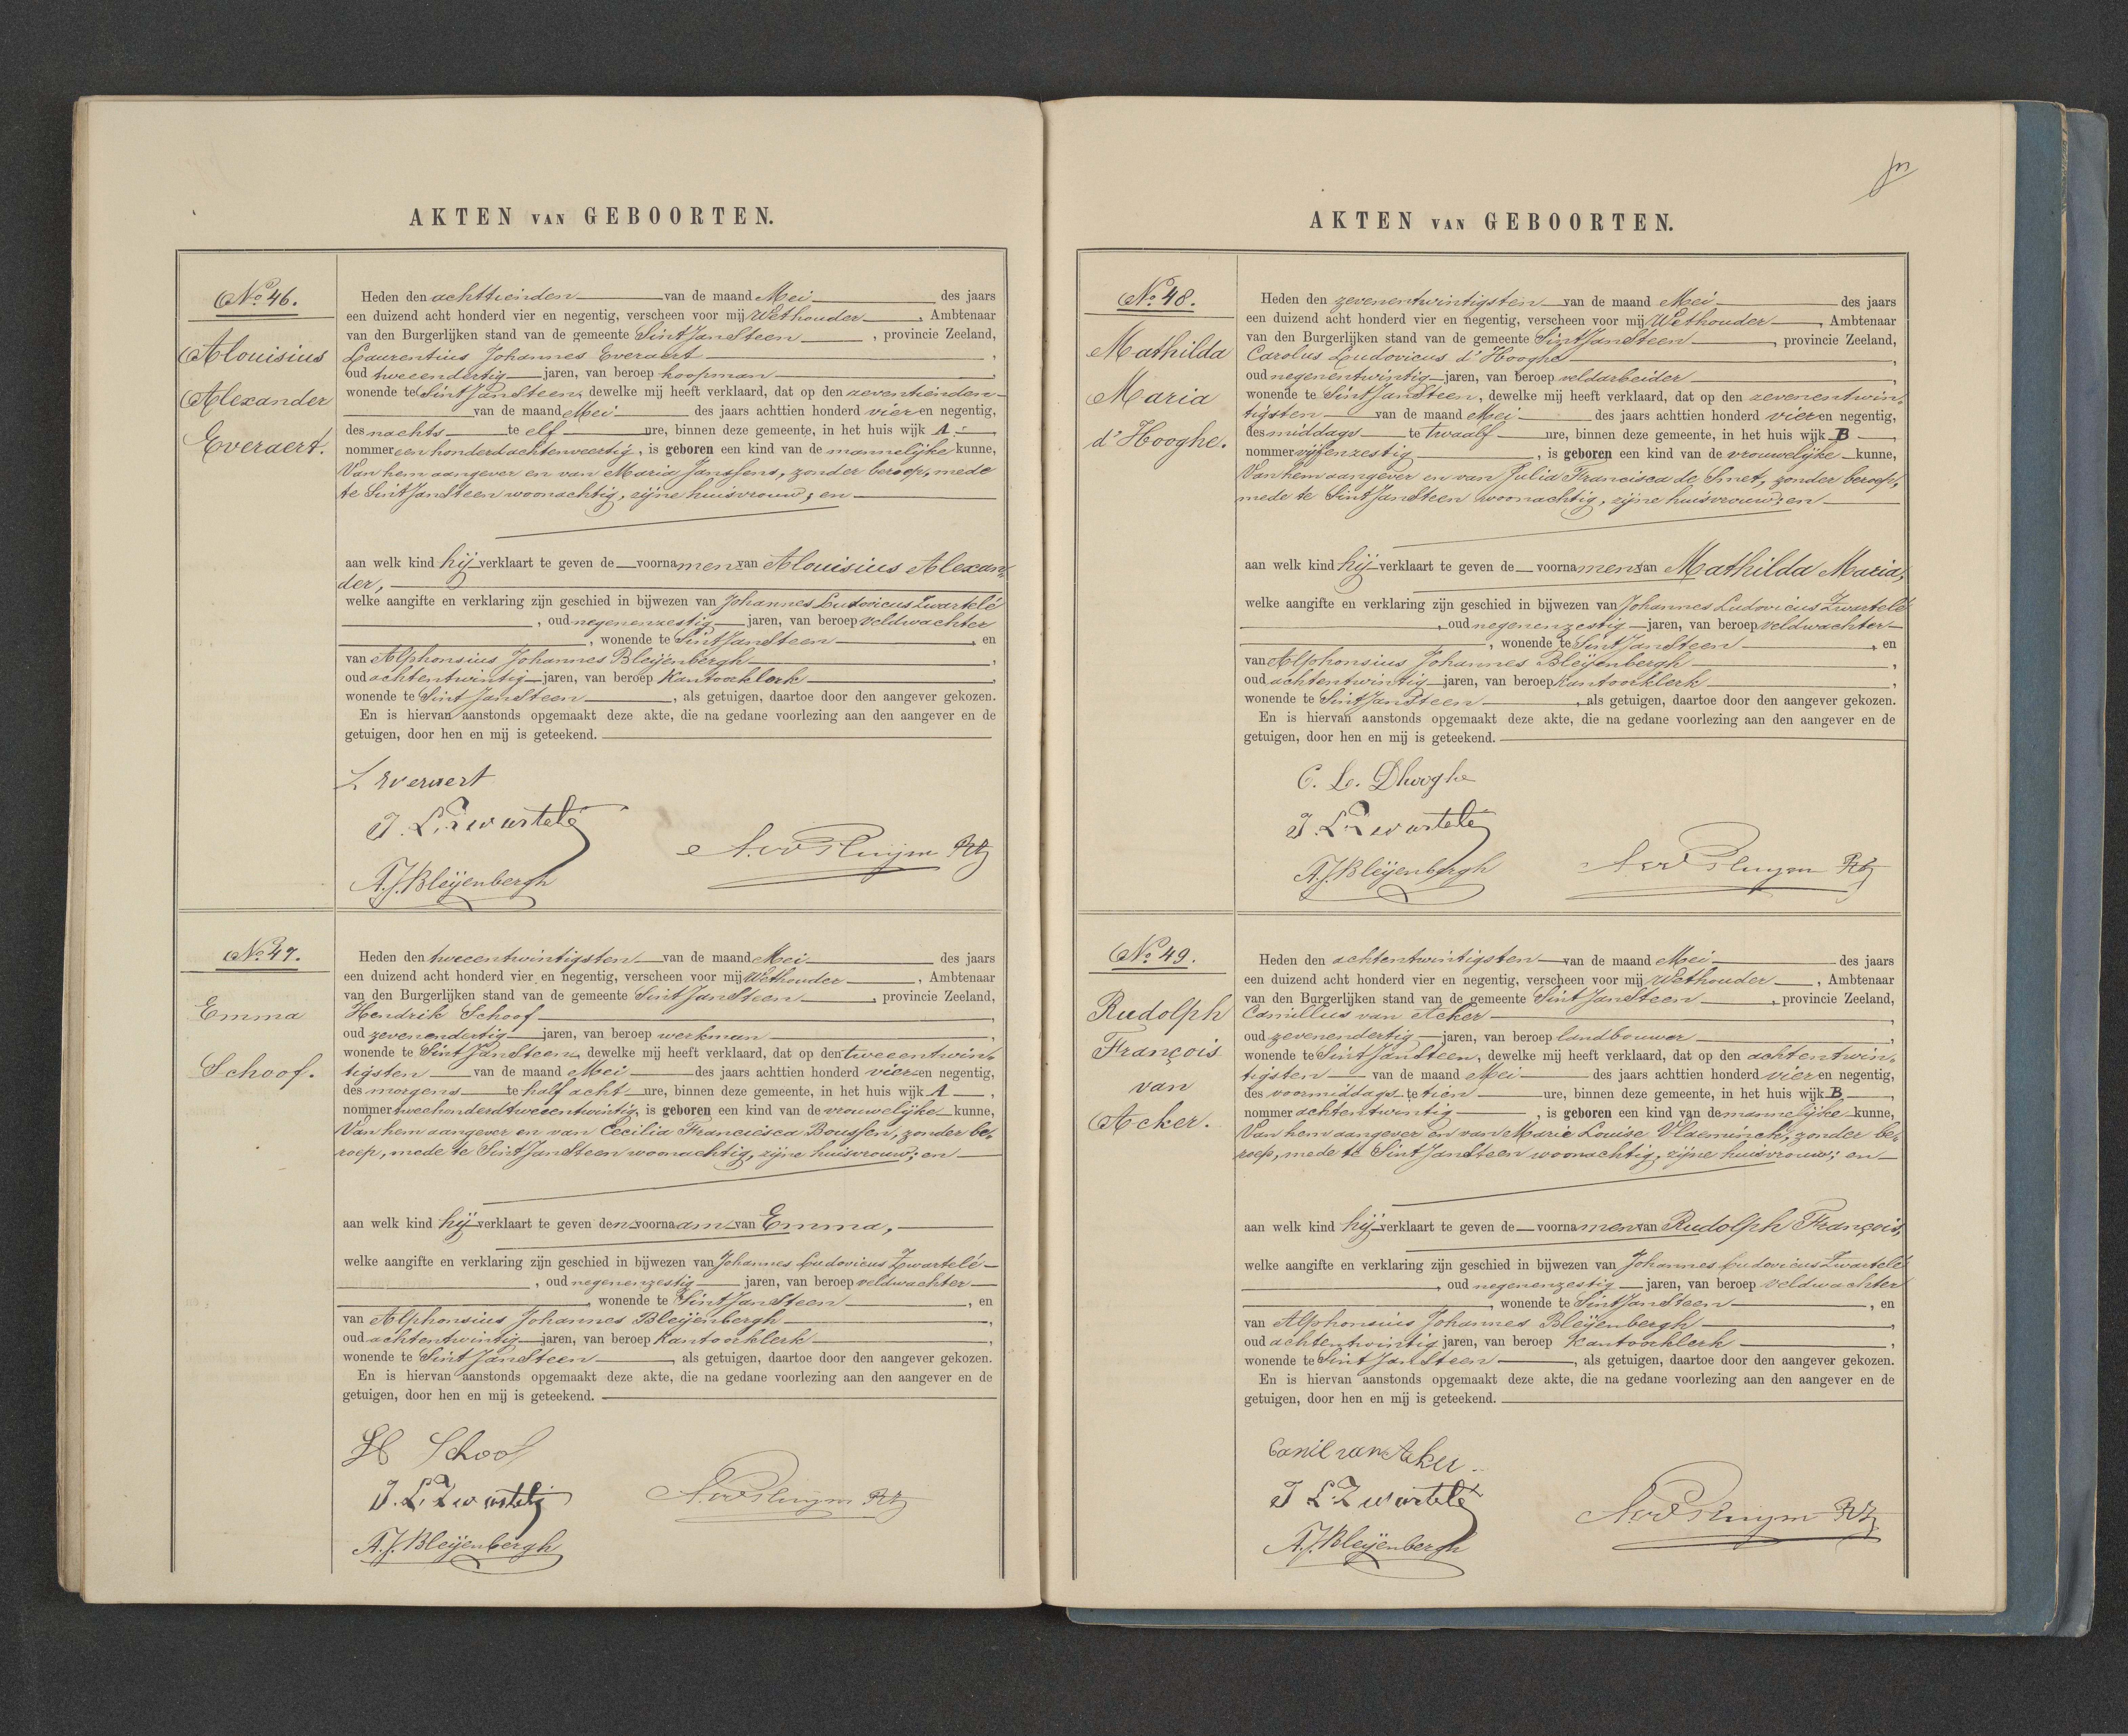 AKTEN VAN GEBOORTEN.
No. 46.
Alouisius
Alexander
Everaert.
Heden den achttienden van de maand Mei des jaars
een duizend acht honderd vier en negentig, verscheen voor mij Wethouder, Ambtenaar
van den Burgerlijken stand van de gemeente Sint JanSteen, provincie Zeeland,
Laurentius Johannes Everaert,
oud tweeendertig jaren, van beroep koopman,
wonende te Sint JanSteen, dewelke mij heeft verklaard, dat op den zeventienden
van de maand Mei des jaars achttien honderd vier en negentig,
des nachts te elf ure, binnen deze gemeente, in het huis wijk A,
nommer een honderdachtenveertig, is geboren een kind van de mannelijke kunne,
Van hem aangever en van Maria Janssens, zonder beroep, mede
te Sint JanSteen woonachtig, zijne huisvrouw; en
aan welk kind hij verklaart te geven de voornamen van Alouisius Alexan-
der,
welke aangifte en verklaring zijn geschied in bijwezen van Johannes Ludovicus Zwartelé
, oud negenenzestig jaren, van beroep veldwachter
, wonende te Sint JanSteen, en
van Alphonsius Johannes Bleijenbergh,
oud achtentwintig jaren, van beroep Kantoorklerk,
wonende te Sint JanSteen, als getuigen, daartoe door den aangever gekozen.
En is hiervan aanstonds opgemaakt deze akte, die na gedane voorlezing aan den aangever en de
getuigen, door hen en mij is geteekend.
L Everaert
J. L. Zwartelé
A. J. Bleijenbergh
No. 47.
Emma
Schoof.
Heden den tweeentwintigsten van de maand Mei des jaars
een duizend acht honderd vier en negentig, verscheen voor mij Wethouder, Ambtenaar
van den Burgerlijken stand van de gemeente Sint JanSteen, provincie Zeeland,
Hendrik Schoof,
oud zevenendertig jaren, van beroep werkman,
wonende te Sint JanSteen, dewelke mij heeft verklaard, dat op den tweeentwin-
tigsten van de maand Mei des jaars achttien honderd vier en negentig,
des morgens te half acht ure, binnen deze gemeente, in het huis wijk A,
nommer tweehonderdtweeentwintig, is geboren een kind van de vrouwelijke kunne,
Van hem aangever en van Cecilia Francisca Boussen, zonder be-
roep, mede te Sint JanSteen woonachtig, zijne huisvrouw; en
aan welk kind hij verklaart te geven den voornaam van Emma,
welke aangifte en verklaring zijn geschied in bijwezen van Johannes Ludovicus Zwartelé
, oud negenenzestig jaren, van beroep veldwachter
, wonende te Sint JanSteen, en
van Alphonsius Johannes Bleijenbergh,
oud achtentwintig jaren, van beroep Kantoorklerk,
wonende te Sint JanSteen, als getuigen, daartoe door den aangever gekozen.
En is hiervan aanstonds opgemaakt deze akte, die na gedane voorlezing aan den aangever en de
getuigen, door hen en mij is geteekend.
H Schoof
J. L. Zwartelé
A. J. Bleijenbergh
AKTEN VAN GEBOORTEN.
No. 48.
Mathilda
Maria
d'Hooghe.
Heden den zevenentwintigsten van de maand Mei des jaars
een duizend acht honderd vier en negentig, verscheen voor mij Wethouder, Ambtenaar
van den Burgerlijken stand van de gemeente Sint JanSteen, provincie Zeeland,
Carolus Ludovicus d'Hooghe,
oud negenentwintig jaren, van beroep veldarbeider,
wonende te Sint JanSteen, dewelke mij heeft verklaard, dat op den zevenentwin-
tigsten van de maand Mei des jaars achttien honderd vier en negentig,
des middags te twaalf ure, binnen deze gemeente, in het huis wijk B,
nommer vijfenzestig, is geboren een kind van de vrouwelijke kunne,
Van hem aangever en van Julia Francisca de Smet, zonder beroep,
mede te Sint JanSteen woonachtig, zijne huisvrouw; en
aan welk kind hij verklaart te geven de voornamen van Mathilda Maria,
welke aangifte en verklaring zijn geschied in bijwezen van Johannes Ludovicus Zwartelé
, oud negenenzestig jaren, van beroep veldwachter
, wonende te Sint JanSteen, en
van Alphonsius Johannes Bleijenbergh,
oud achtentwintig jaren, van beroep Kantoorklerk,
wonende te Sint JanSteen, als getuigen, daartoe door den aangever gekozen.
En is hiervan aanstonds opgemaakt deze akte, die na gedane voorlezing aan den aangever en de
getuigen, door hen en mij is geteekend.
C. L. Dhooghe
J. L. Zwartelé
A. J. Bleijenbergh
No. 49.
Rudolph
François
van
Acker.
Heden den achtentwintigsten van de maand Mei des jaars
een duizend acht honderd vier en negentig, verscheen voor mij Wethouder, Ambtenaar
van den Burgerlijken stand van de gemeente Sint JanSteen, provincie Zeeland,
Camillus van Acker,
oud zevenendertig jaren, van beroep landbouwer,
wonende te Sint JanSteen, dewelke mij heeft verklaard, dat op den achtentwin-
tigsten van de maand Mei des jaars achttien honderd vier en negentig,
des voormiddags te tien ure, binnen deze gemeente, in het huis wijk B,
nommer achtentwintig, is geboren een kind van de mannelijke kunne,
Van hem aangever en van Marie Louise Vlaeminck, zonder be-
roep, mede te Sint JanSteen woonachtig, zijne huisvrouw; en
aan welk kind hij verklaart te geven de voornamen van Rudolph François,
welke aangifte en verklaring zijn geschied in bijwezen van Johannes Ludovicus Zwartelé
, oud negenenzestig jaren, van beroep veldwachter
, wonende te Sint JanSteen, en
van Alphonsius Johannes Bleijenbergh,
oud achtentwintig jaren, van beroep Kantoorklerk,
wonende te Sint JanSteen, als getuigen, daartoe door den aangever gekozen.
En is hiervan aanstonds opgemaakt deze akte, die na gedane voorlezing aan den aangever en de
getuigen, door hen en mij is geteekend.
Camil van Aker.
J L. Zwartelé
A. J. Bleijenbergh